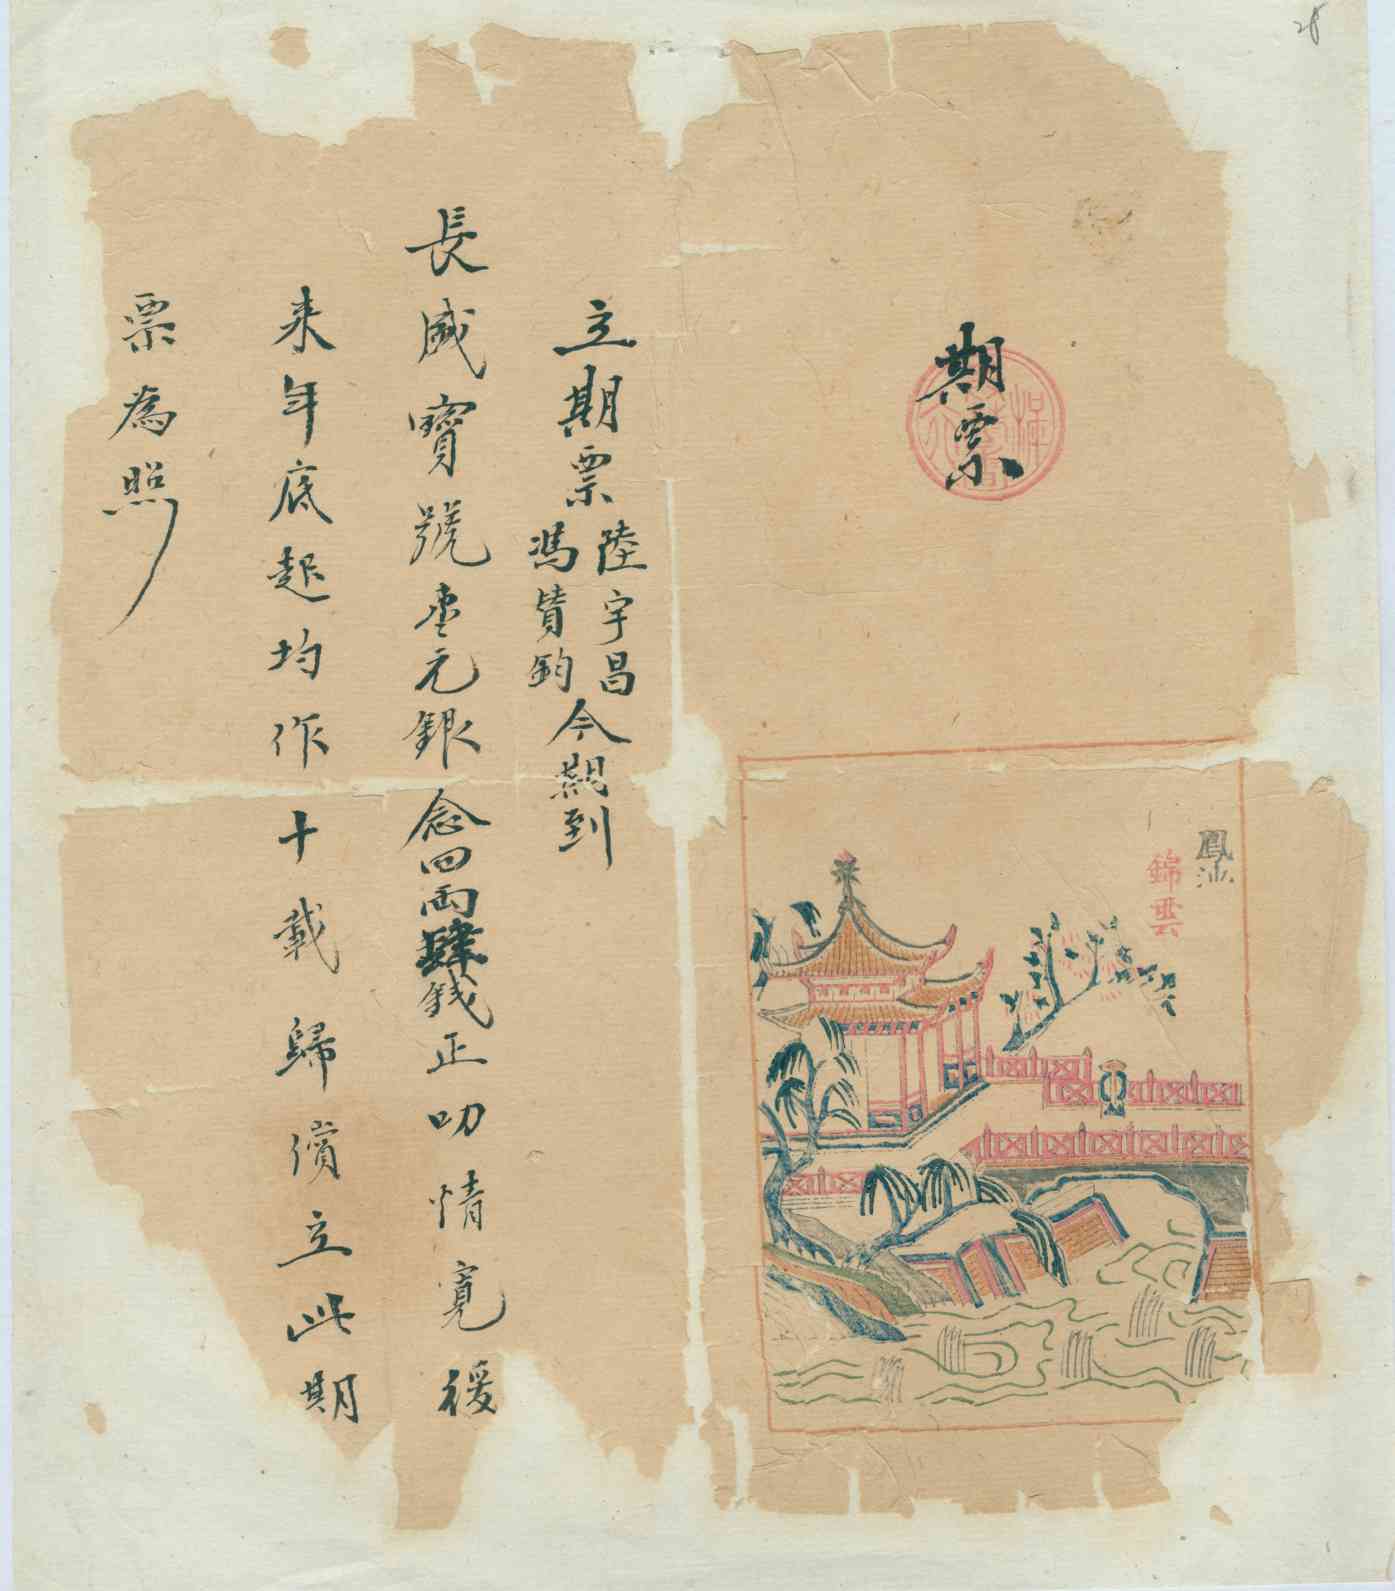 期票
鳳山
錦雲
立期票陸宇昌馮贊鈞今親到
長盛寶號壹元銀念四兩肆錢正叨情寬緩
来年底起均作十載歸償立此期
票為照
28